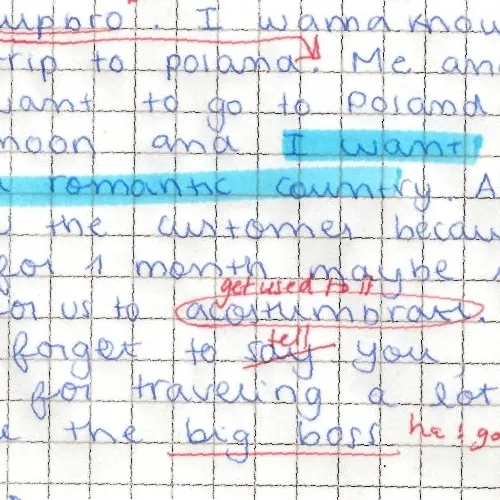 I wanna know
trip to poland. Me and
want to go to Poland
moon and I want
romantic country. A
the customer becau
for 1 month maybe
get used to it
for us to acostumbrar.
tell
forget to say you
for traveling a lot
the big boss he's go